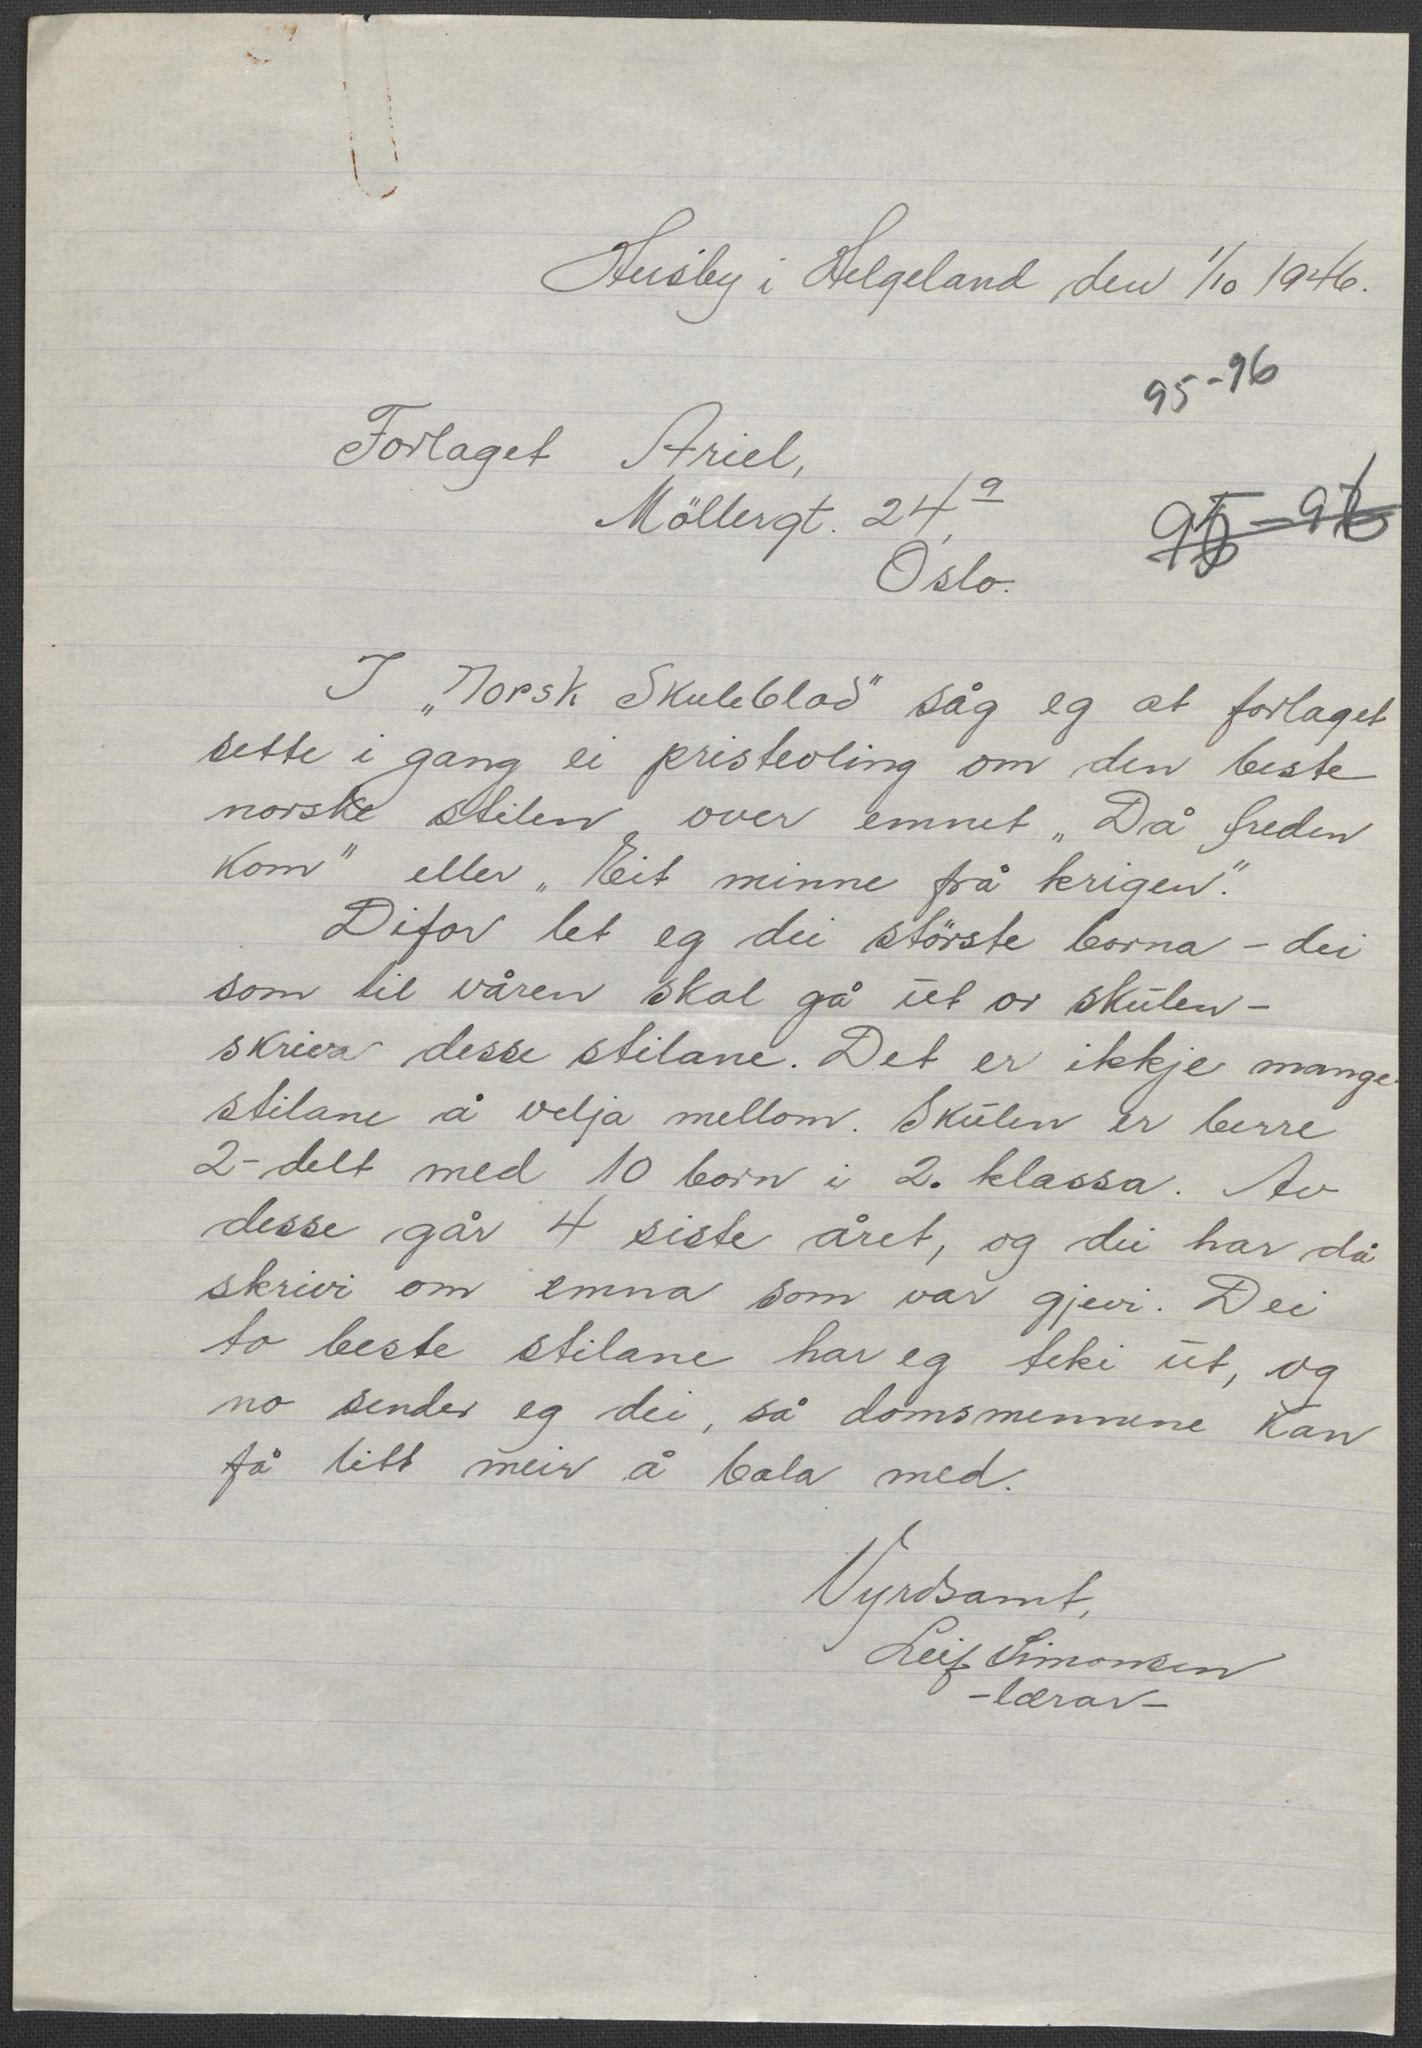 Husby i Helgeland den 1/10 1946.
95-96
Forlaget Ariel,
Möllergt. 24a,
95-96
Oslo.
I „Norsk Skuleblad" såg eg at forlaget
sette i gang ei pristevling om den beste
norske stilen over emnet „Då freden
kom" eller „Eit minne frå krigen".
Difor let eg dei störste borna - dei
som til våren skal gå ut or skulen -
skriva desse stilane. Det er ikkje mange
stilane å velja mellom. Skulen er berre
2-delt med 10 born i 2. klassa. Av
desse går 4 siste året, og dei har då
skrivi om emna som var gjevi. Dei
to beste stilane har eg teki ut, og
no sender eg dei, så domsmennene kan
få litt meir å bala med.
Vyrdsamt,
Leif Simonsen
-lærar-